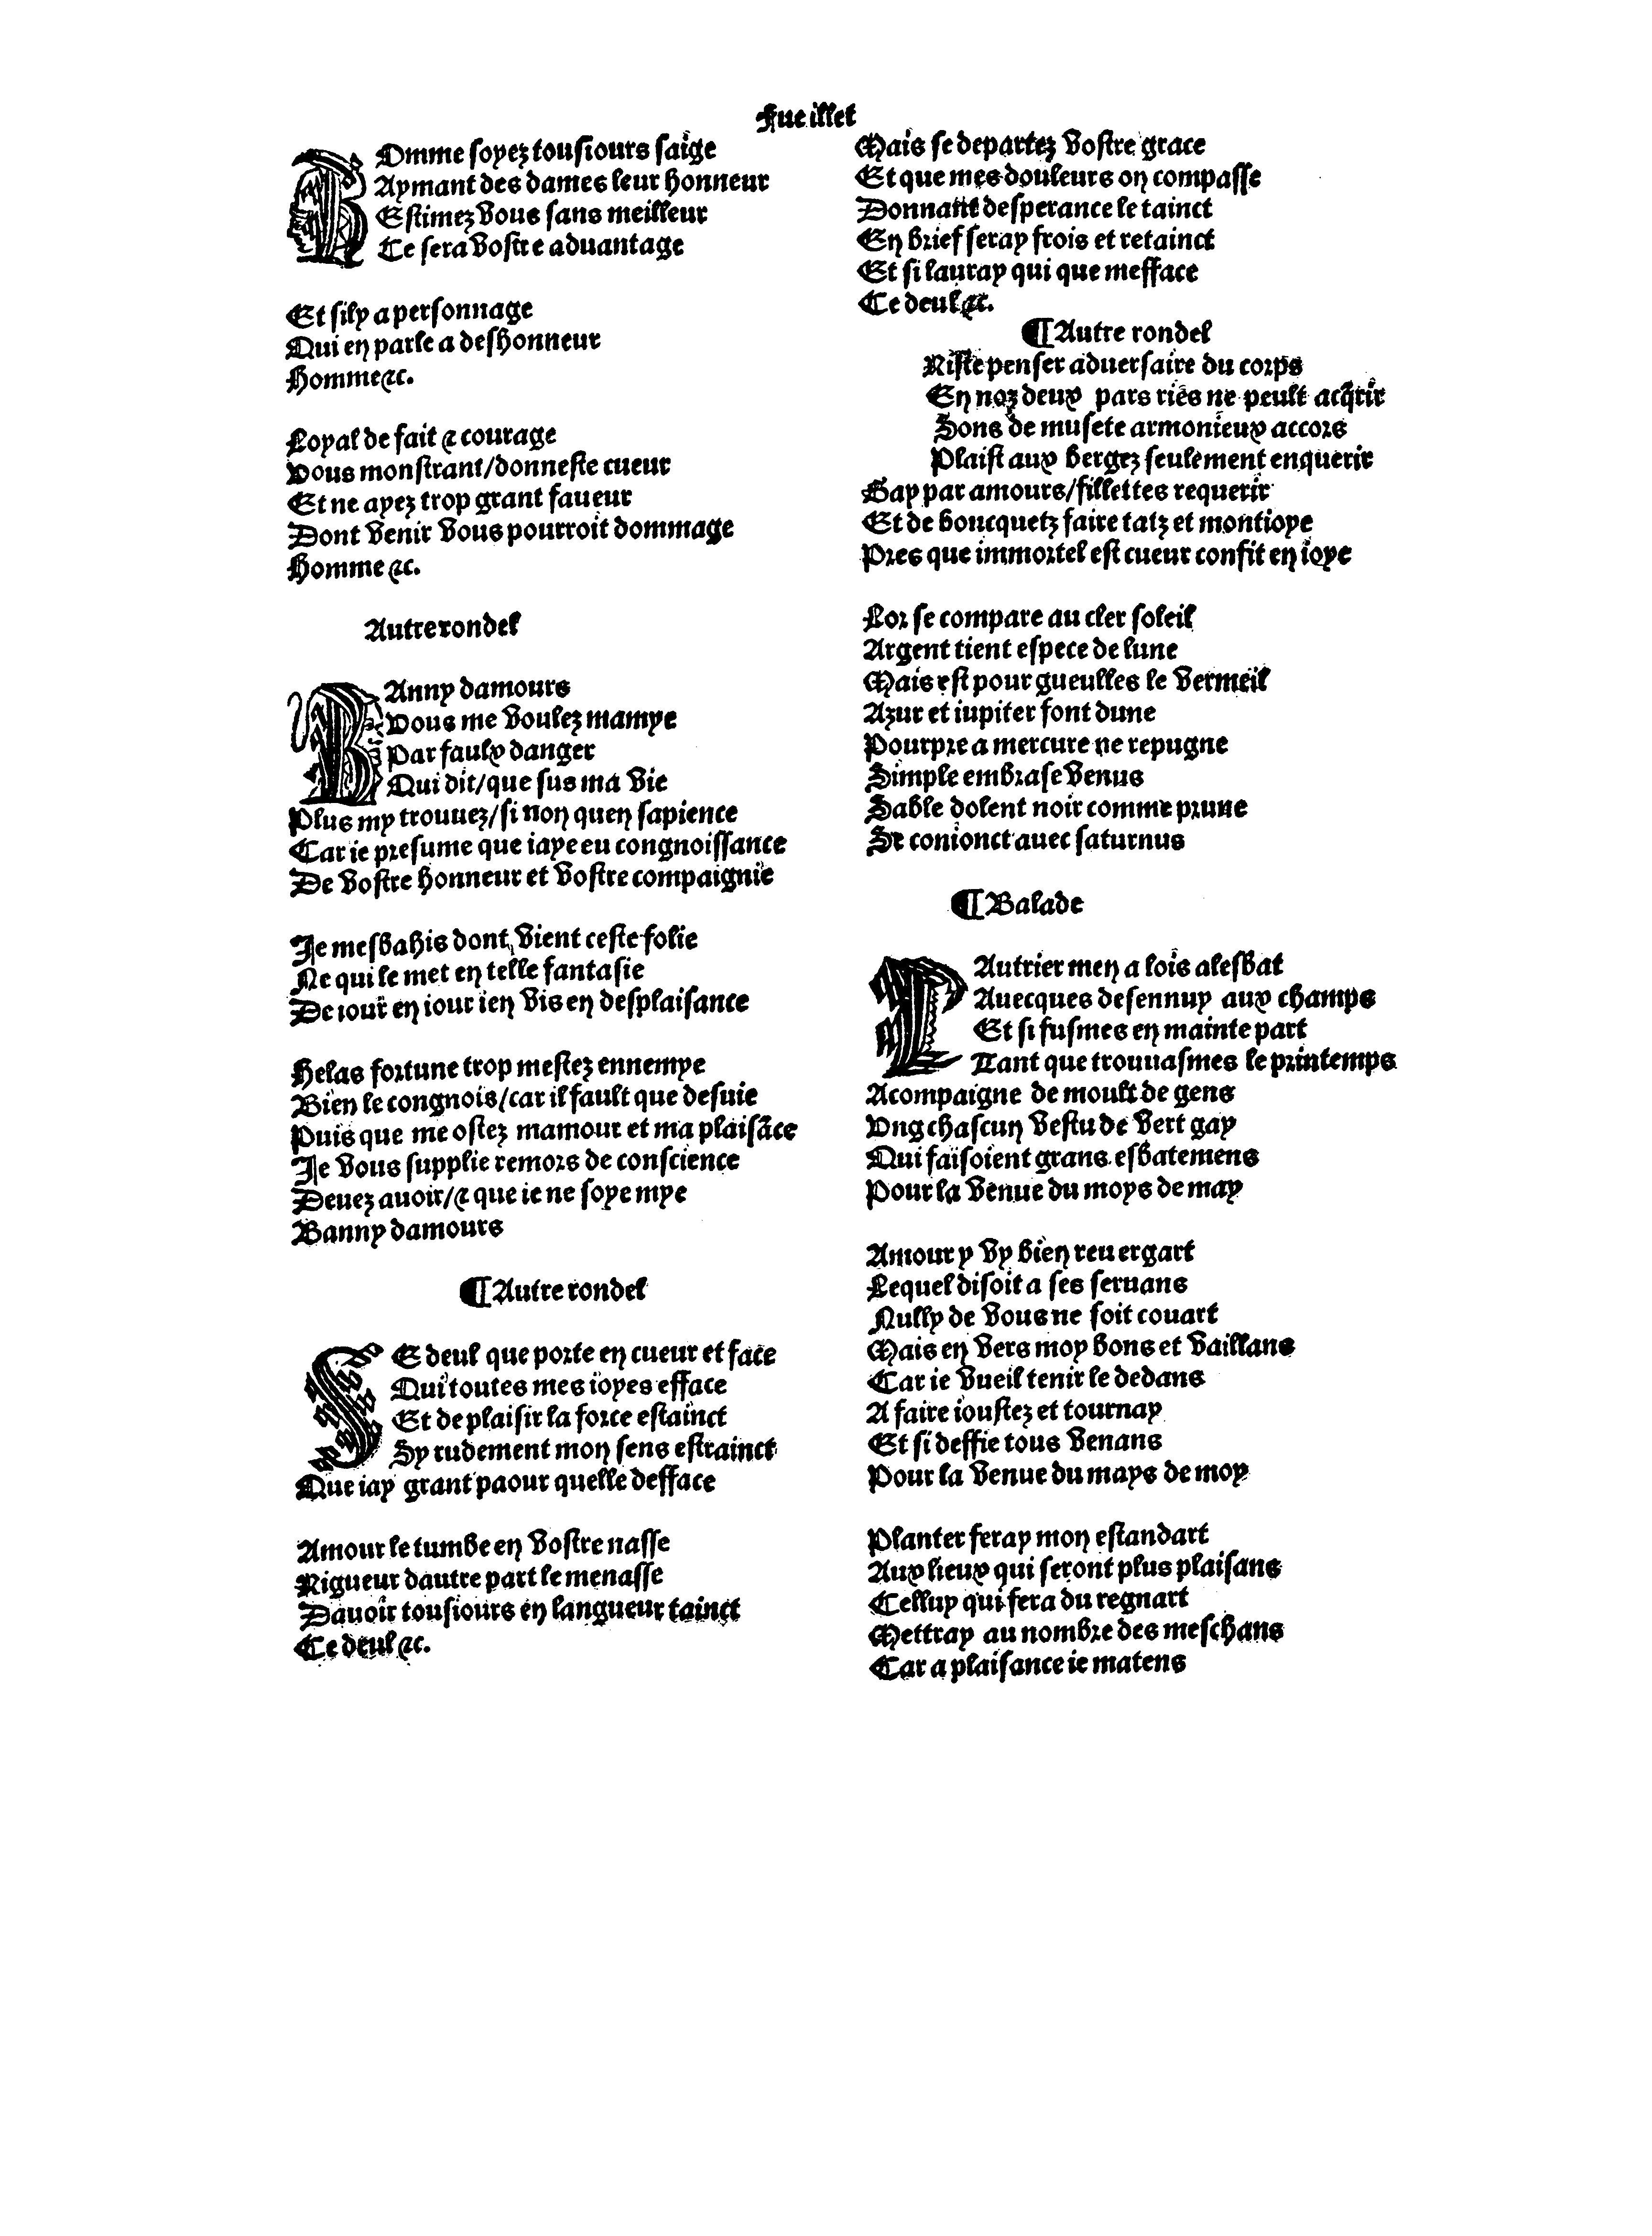 Fueillet
HOmme soyez tousiours saige
Aymant des dames leur honneur
Estimez vous sans meilleur
Ce sera vostre aduantage
Et sily a personnage
Qui en parle a deshonneur
Homme &c.
Loyal de fait & courage
Vous monstrant/donneste cueur
Et ne ayez trop grant faueur
Dont venir vous pourroit dommage
Homme &c.
Autre rondel
BAnny damours
Vous me voulez mamye
Par faulx danger
Qui dit/que sus ma vie
Plus my trouuez/si non quen sapience
Car ie presume que iaye eu congnoissance
De vostre honneur et vostre compaignie
Je mesbahis dont vient ceste folie
Ne qui le met en telle fantasie
De iour en iour ien vis en desplaisance
Helas fortune trop mestez ennemye
Bien le congnois/car il fault que desuie
Puis que me ostez mamour et ma plaisãce
Je vous supplie remors de conscience
Deuez auoir/& que ie ne soye mye
Banny damours
¶Autre rondel
SE deul que porte en cueur et face
Qui toutes mes ioyes efface
Et de plaisir la force estainct
Sy rudement mon sens estrainct
Que iay grant paour quelle defface
Amour le tumbe en vostre nasse
Rigueur dautre part le menasse
Dauoir tousiours en langueur tainct
Ce deul &c.
Mais se departez vostre grace
Et que mes douleurs on compasse
Donnant desperance le tainct
En brief seray frois et retainct
Et si lauray qui que mefface
Ce deul &c.
¶Autre rondel
Riste penser aduersaire du corps
En noz deux pars riẽs ne peult acq̃rir
Sons de musete armonieux accors
Plaist aux bergez seulement enquerir
Gay par amours/fillettes requerir
Et de boucquetz faire tatz et montioye
Pres que immortel est cueur confit en ioye
Lor se compare au cler soleil
Argent tient espece de lune
Mais est pour gueulles le vermeil
Azur et iupiter font dune
Pourpre a mercure ne repugne
Simple embrase venus
Sable dolent noir comme prune
Se conionct auec saturnus
¶Balade
LAutrier men a lois alesbat
Auecques desennuy aux champs
Et si fusmes en mainte part
Tant que trouuasmes le printemps
Acompaigne de moult de gens
Vng chascun vestu de vert gay
Qui faisoient grans esbatemens
Pour la venue du moys de may
Amour y vy bien reuergart
Lequel disoit a ses seruans
Nully de vous ne soit couart
Mais en vers moy bons et vaillans
Car ie vueil tenir le dedans
A faire ioustez et tournay
Et si deffie tous venans
Pour la venue du mays de moy
Planter feray mon estandart
Aux lieux qui seront plus plaisans
Celluy qui fera du regnart
Mettray au nombre des meschans
Car a plaisance ie matens